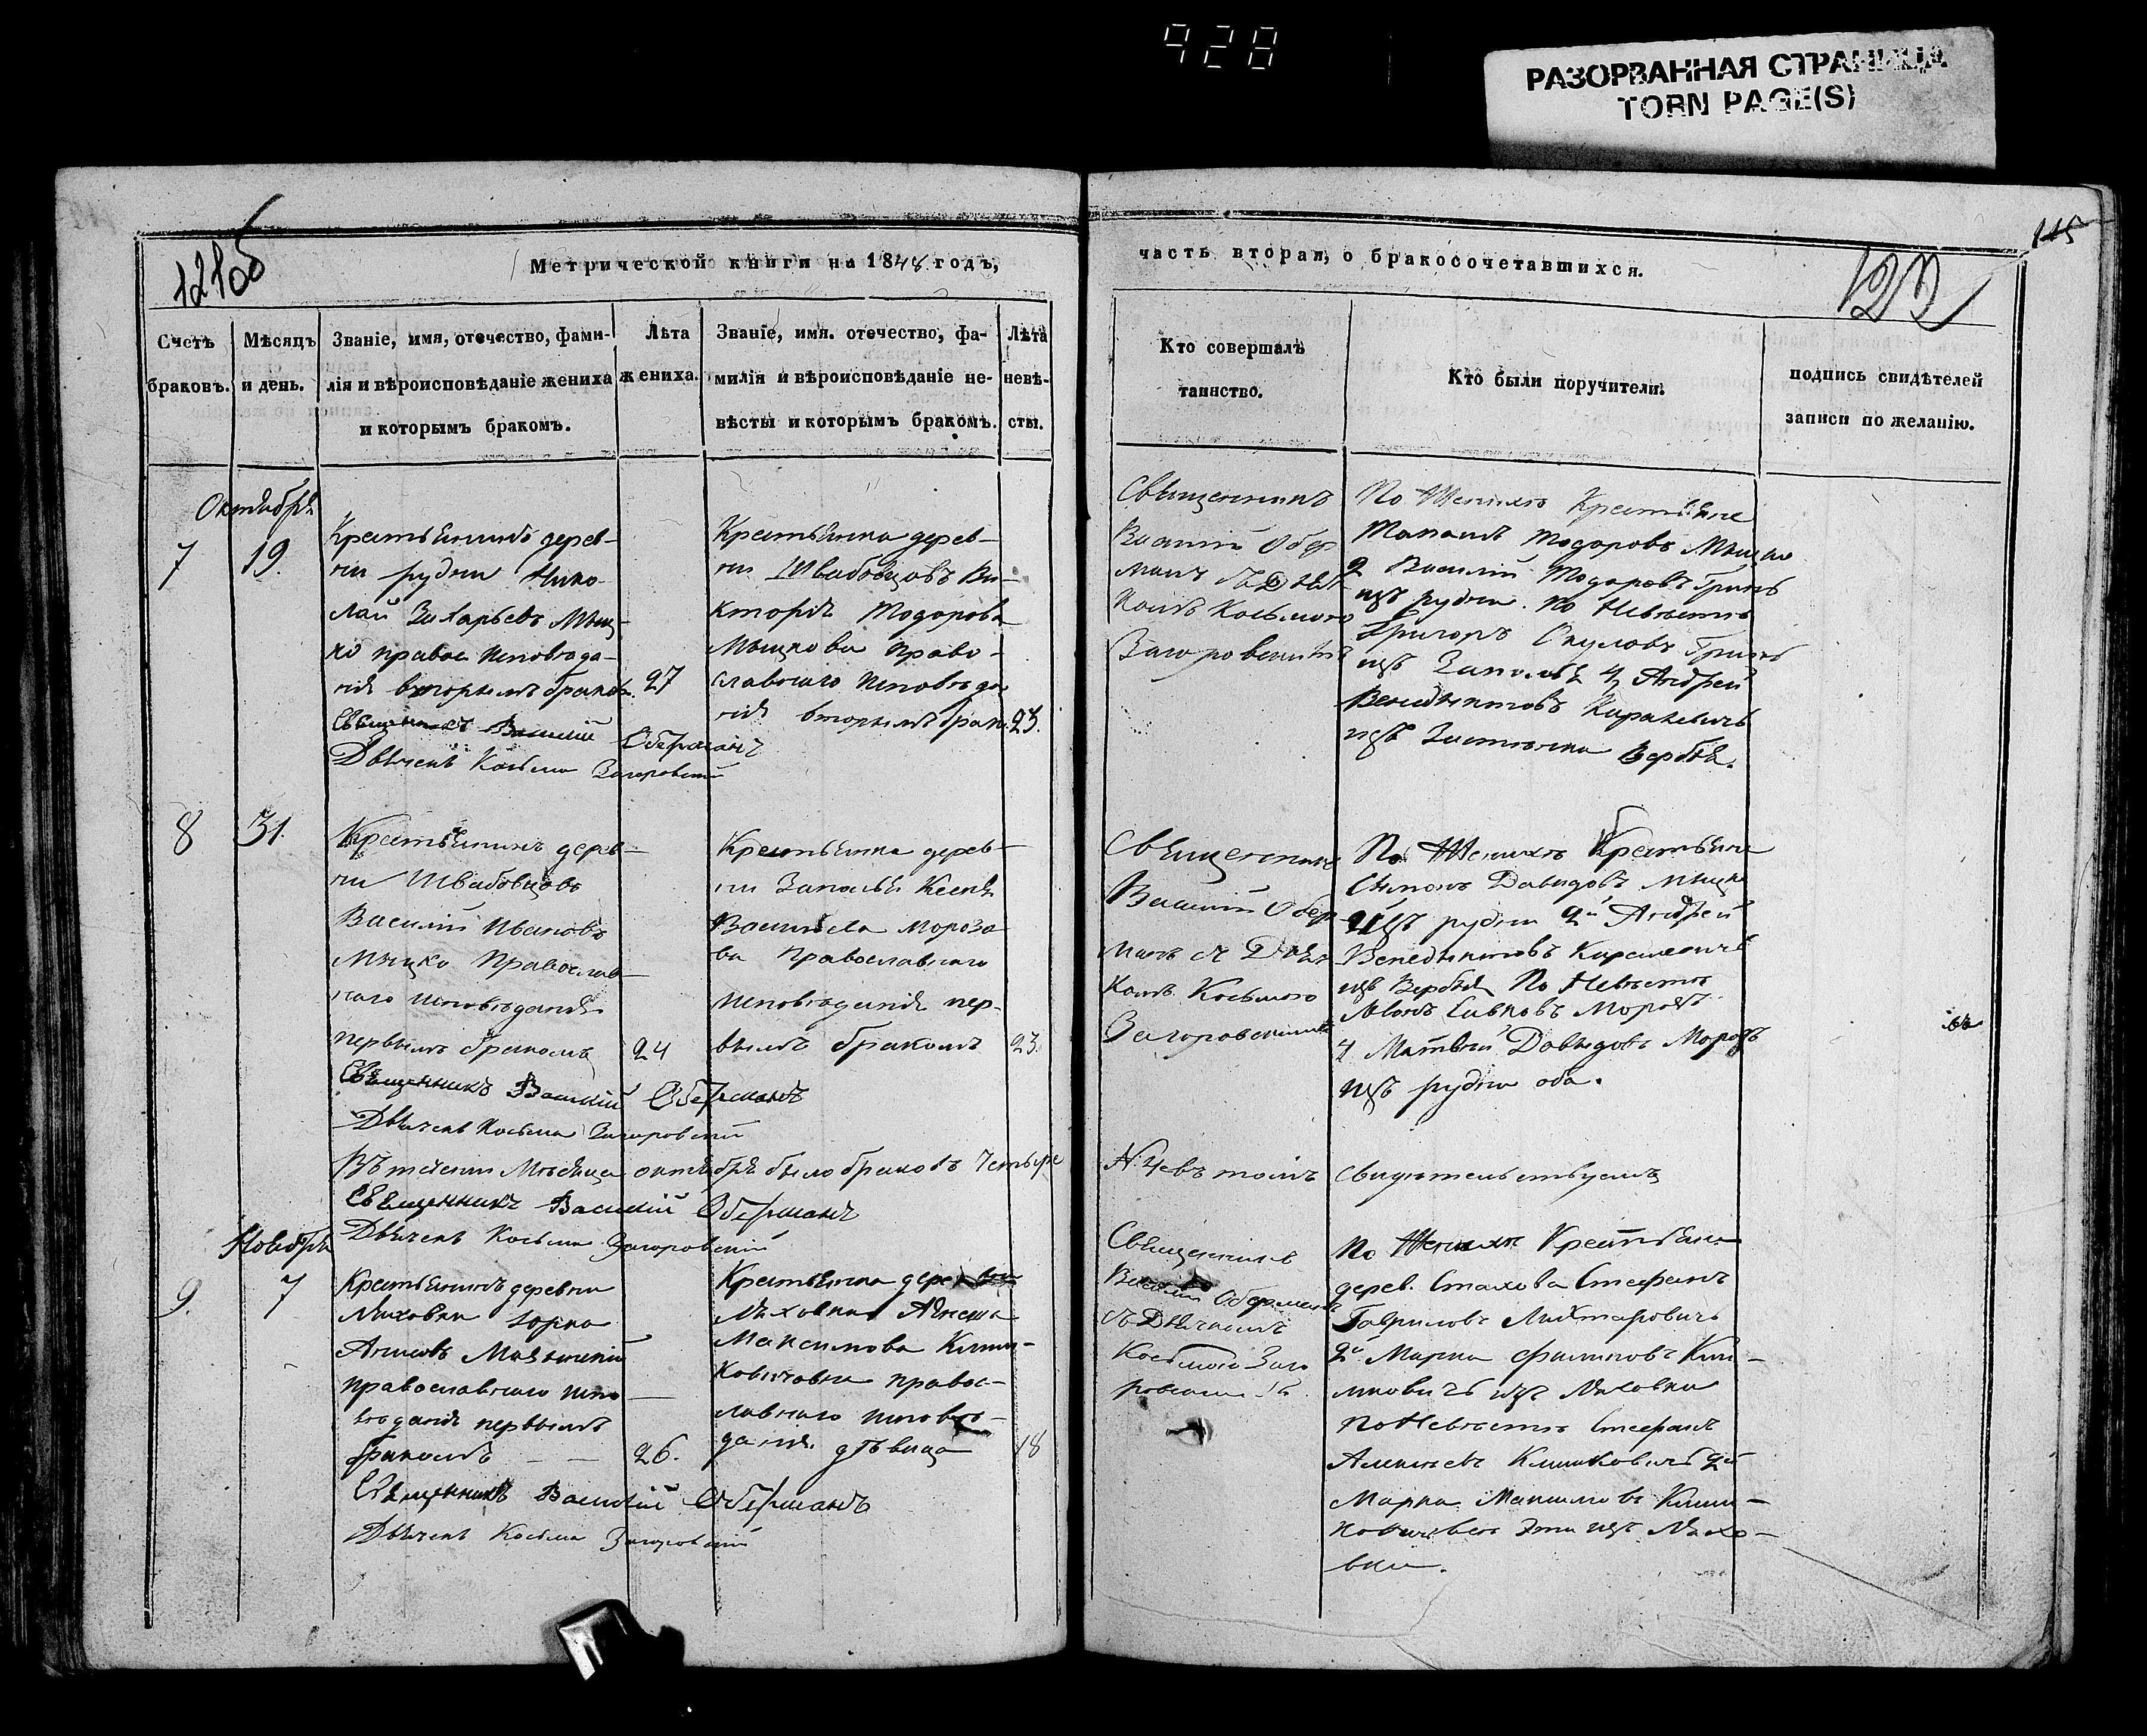 928
РАЗОРВАННАЯ СТРАНИЦА
TORN PAGE(S)
115
121об
122
Метрической книги на 1848 годъ,
часть вторая, о бракосочетавшихся.
Счетъ браковъ.
Мѣсяцъ и день.
Званіе, имя, отечество, фами-
лія и вѣроисповѣданіе жениха
и которымъ бракомъ.
Лѣта
жениха.
Званіе, имя. отечество, фа-
милія и вѣроисповѣданіе не-
вѣсты и которымъ бракомъ.
Лѣта
невѣ-
сты.
Кто совершалъ
таинство.
Кто были поручители.
подпись свидѣтелей
записи по желанію.
Октября
7
19.
Крестьянинъ дерев-
ни рудни Нико-
лай Захарьевъ Мыц-
ко правос исповѣда-
нія вторымъ бракомъ.
27
Священникъ Василій Оберманъ
Дьячекъ Косьма Загоровскій
Крестьянка дерев-
ни Швабовцовъ Ви-
кторія Тодорова
Мыцкова право-
славнаго исповѣда
нія вторымъ брак.
23.
Священникъ
Василій Обер
манъ съ Дьяч
комъ Косьмою
Загоровскимъ
По Женихѣ Крестьяне
Тодоровъ Мыцко
2 Василій Тодоровъ
изъ рудни. По Невѣстѣ
Григоръ
изъ Заполья Андрей
Венедыктовъ
изъ Вербья.
8
31.
Крестьянинъ дерев-
ни Швабовцовъ
Василій Ивановъ
Мыцко Православ-
наго исповѣданія
первымъ бракомъ
24
Священникъ Василій Оберманъ
Дьячекъ Косьма Загоровскій
Крестьянка дерев-
ни Заполья Ксенія
Васильева Морозо
ва Православнаго
исповѣданія пер-
вымъ бракомъ
23.
Священникъ
Василій Обер
манъ съ Дьяч
комъ Косьмою
Загоровскимъ
По Женихѣ Крестьяне
Симонъ Давидовъ Мыцко
изъ рудни 2й Андрей
Венедыктовъ
изъ Вербья По Невѣстѣ
Савковъ Морозъ
Матвѣй Давыдовъ Морозъ
изъ рудни оба.
Въ теченіи Мѣсяца октября было браковъ четыре
N. 4 въ томъ
свидѣтельствуемъ
Священникъ Василій Оберманъ
Дьячекъ Косьма Загоровскій
Ноября
9.
7
Крестьянинъ деревни
Ляховки
православнаго испо-
вѣданія первымъ
бракомъ
26.
Священникъ Василій Оберманъ
Дьячекъ Косьма Загоровскій
Крестьянка
Ляховки
Максимова Клим-
ковичовна правос-
лавнаго исповѣ-
данія. дѣвица
18
Священникъ
Василій Оберманъ
съ Дьячкомъ
Косьмою Заго
ровскимъ
По Женихѣ Крестьяне
дерев. Стахова Стефанъ
Гавриловъ Лихтаровичъ
2й Марка Филиповъ Кли-
мковичъ изъ Ляховки
По Невѣстѣ Стефанъ
Алексѣевъ Климковичъ 2й
Марка Максимовъ Клим-
изъ Ляхо-
вки.